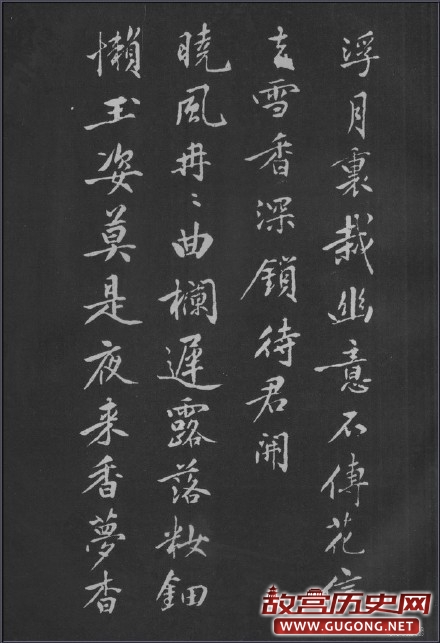 浮月裏栽幽意不傳花信
去雪香深鎖待君開
曉風冉〻曲欄遲露落妝鈿
懶玉姿莫是夜来香夢杳
故宫历史网
WWW.GUGONG.NET